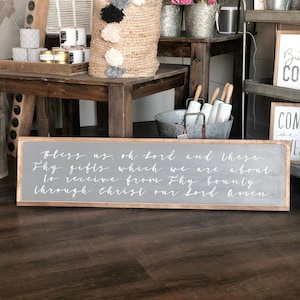 Bless us oh Lord and these
Thy gifts which we are about
to receive from Thy bounty
through Christ our Lord Amen
CO
CON